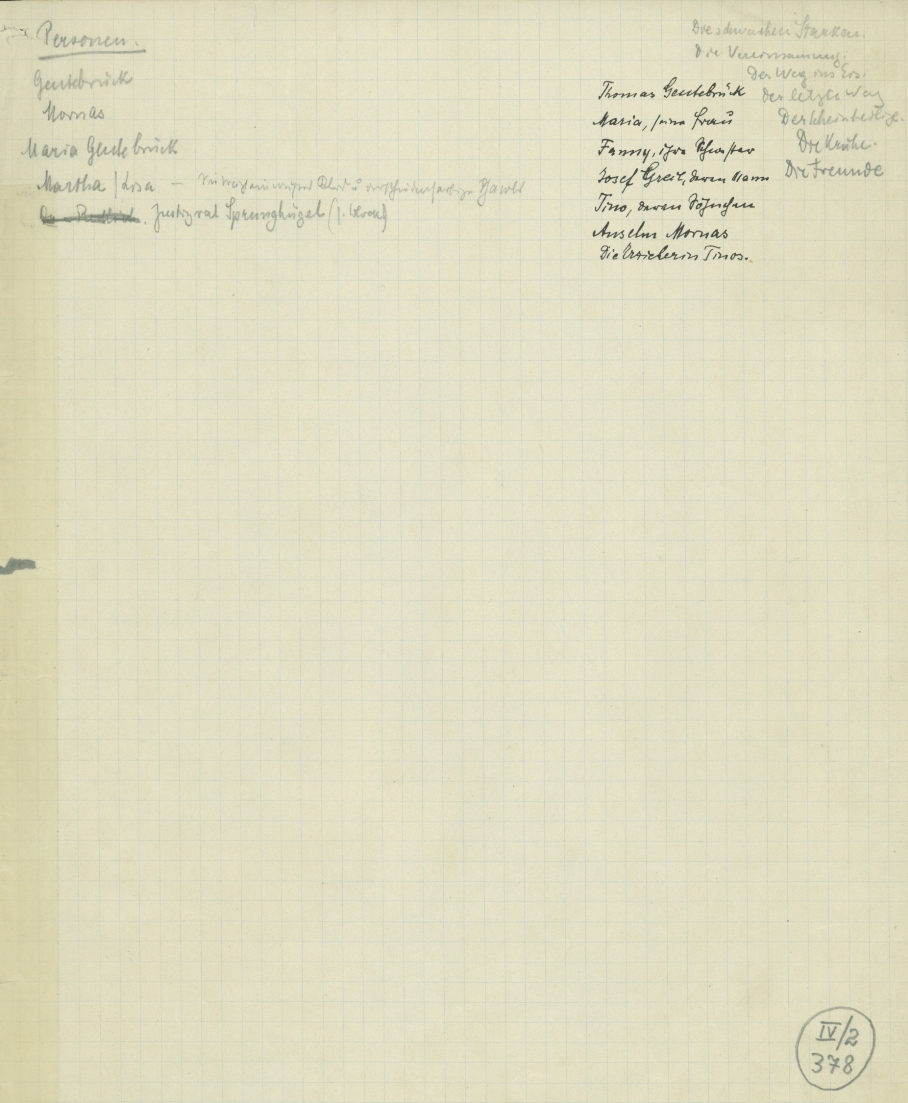 Personen.
Gentebrück
Mornas
Maria Gentebrück
Martha / Lisa —
Justizrat Sprunghügel
Thomas Gentebrück
Maria, seine Frau
Fanny, ihre Schwester
Josef Greil, deren Mann
Tino, deren Söhnchen
Anselm Mornas
Die Erzieherin Tinos.
Die schwachen Starken.
Die Vereinsamung.
Der Weg ins Eis.
Der letzte Weg
Der Scheinheilige.
Die Krähe.
Die Freunde
IV/2
378